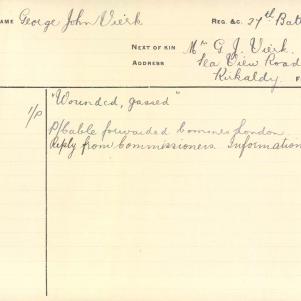 NAME George John Vierk REG. &C. 27th Bat
NEXT OF KIN Mrs G. J. Vierk.
ADDRESS Sea View Road
Kirkaldy
1/P "Wounded, gassed"
P/Cable forwarded Commrs London
Reply from Commissioners Information